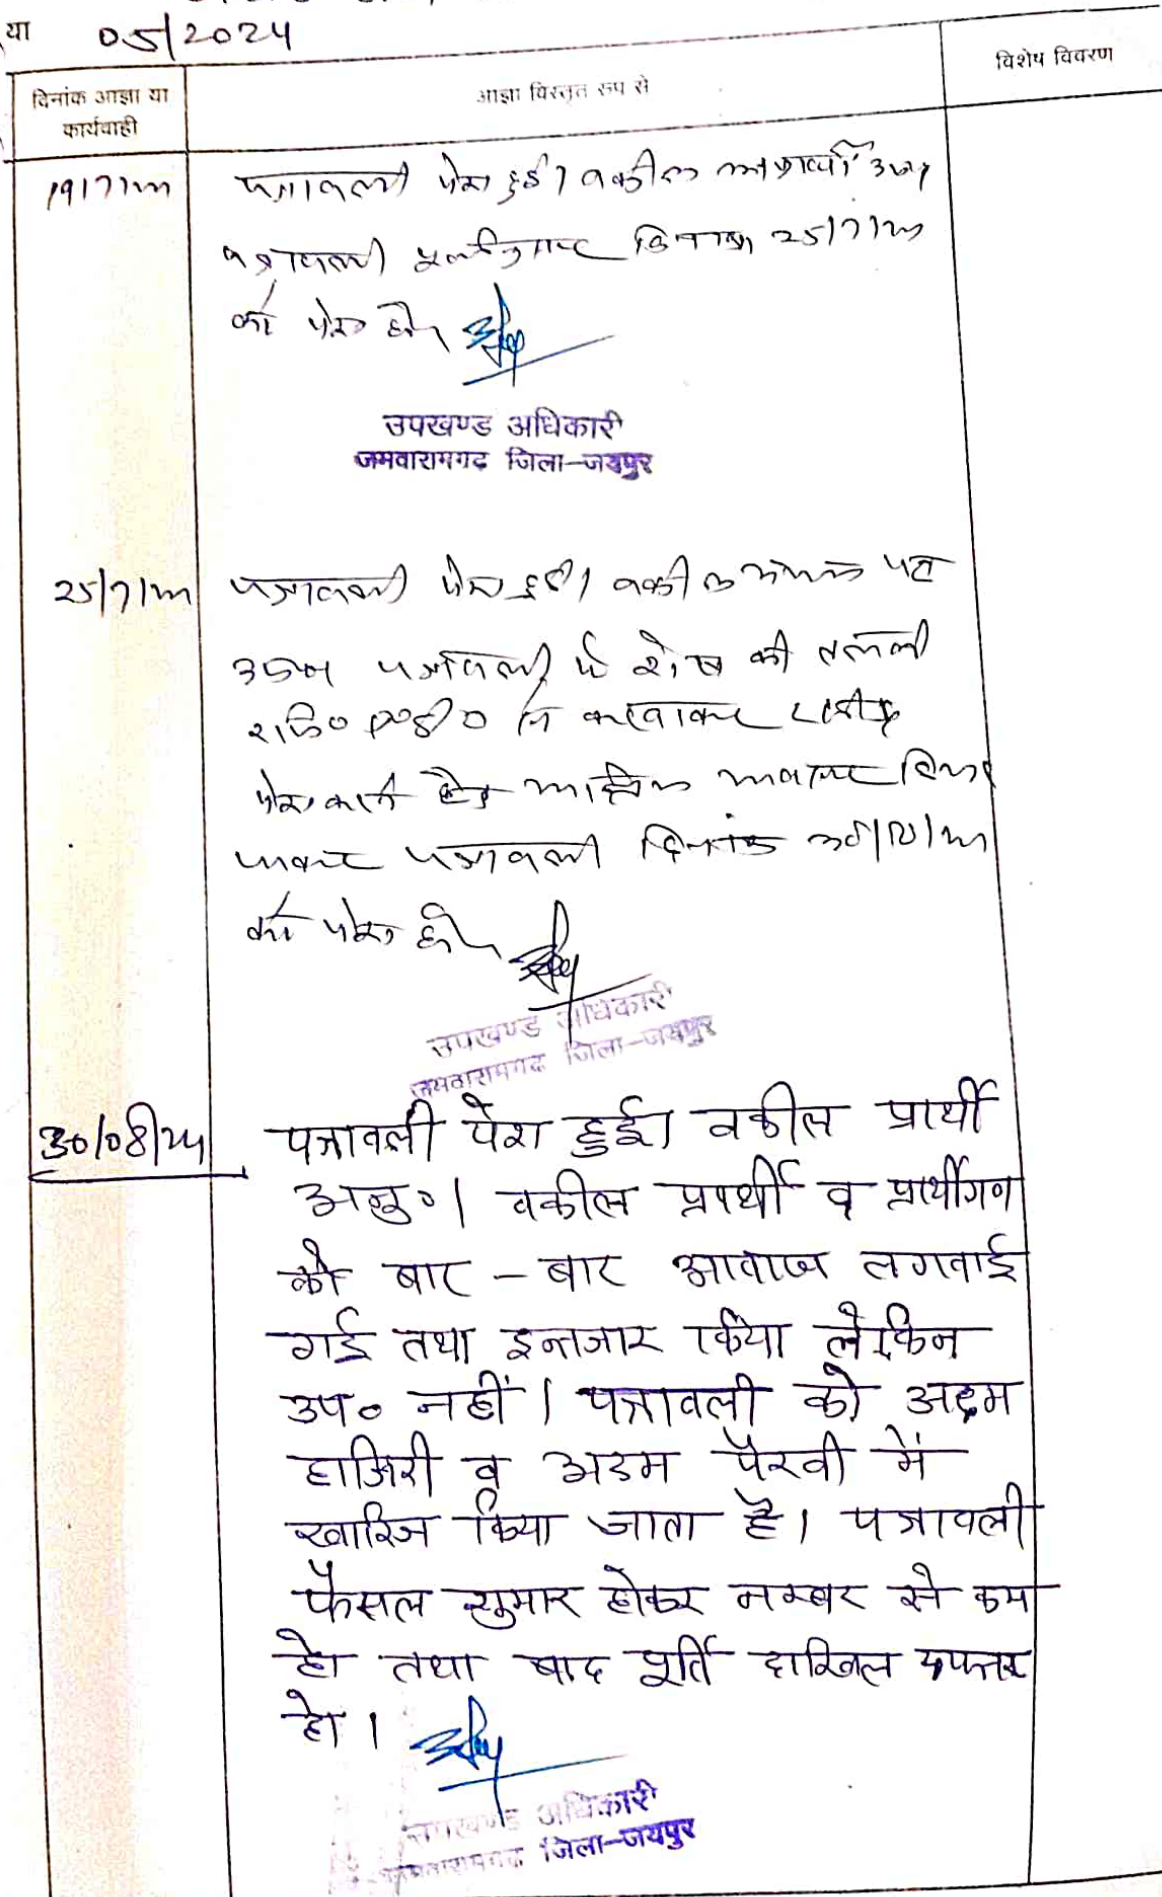 या 05/2024
दिनांक आज्ञा या
कार्यवाही
आज्ञा विस्तृत रूप से
विशेष विवरण
19/7/24 पत्रावली पेश हुई। वकील
पत्रावली दिनांक 25/7/24
को पेश हो।
उपखण्ड अधिकारी
जमवारामगढ जिला-जयपुर
25/7/24 पत्रावली पेश हुई। वकील
पत्रावली में शेष की तलबी
करवाकर रसीद
पेश करने हेतु
पत्रावली दिनांक
को पेश हो।
उपखण्ड अधिकारी
जमवारामगढ जिला-जयपुर
30/08/24 पत्रावली पेश हुई। वकील प्रार्थी
अनु०। वकील प्रार्थी व प्रार्थीगण
को बार - बार आवाज लगवाई
गई तथा इन्तजार किया लेकिन
उप० नहीं। पत्रावली को अदम
हाजिरी व अदम पैरवी में
खारिज किया जाता है। पत्रावली
फैसल शुमार होकर नम्बर से कम
हो तथा बाद पूर्ति दाखिल दफ्तर
हो।
उपखण्ड अधिकारी
जमवारामगढ जिला-जयपुर